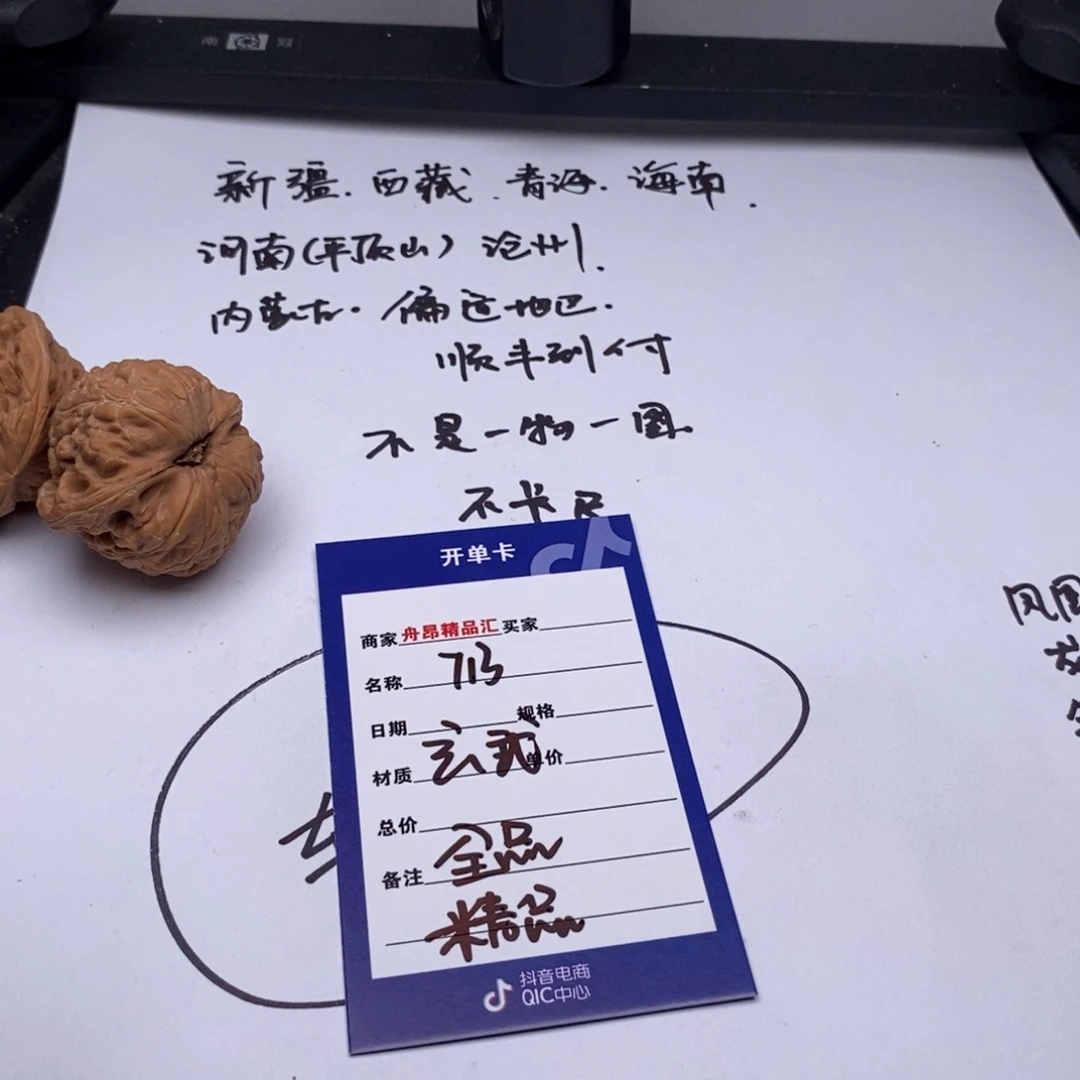 南冠
新疆.西藏.青海.海南.
河南(平顶山)沧州.
内蒙古.偏远地区.
顺丰到付
不是一物一图.
不卡尺
开单卡
商家 舟昂精品汇 买家
名称 713
日期 规格
材质 玄武 单价
总价
备注 全品
精品
抖音电商
QIC中心